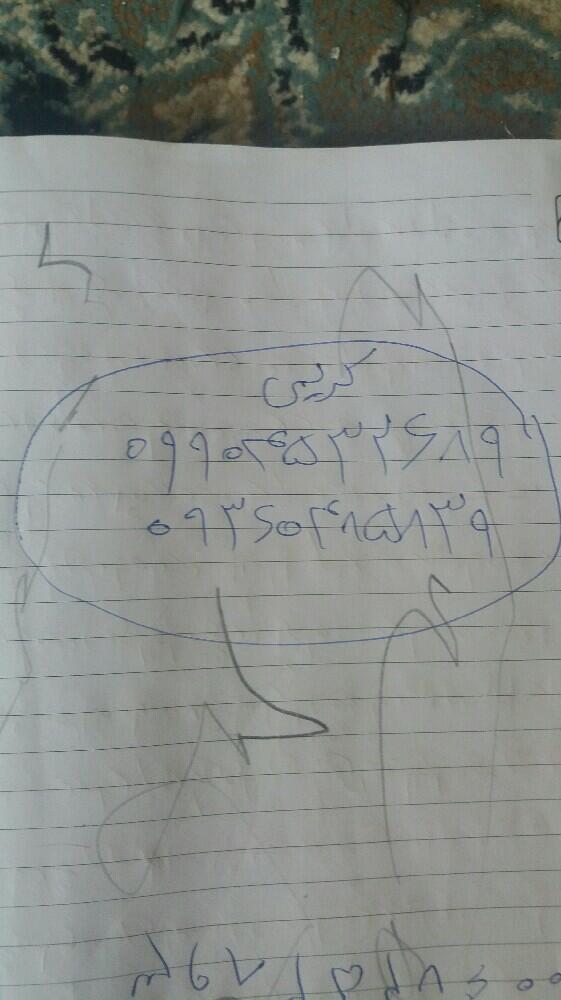 کریمی
۰۹۹۰۴۵۳۲۶۸۹
۰۹۳۶۰۴۸۵۸۳۹